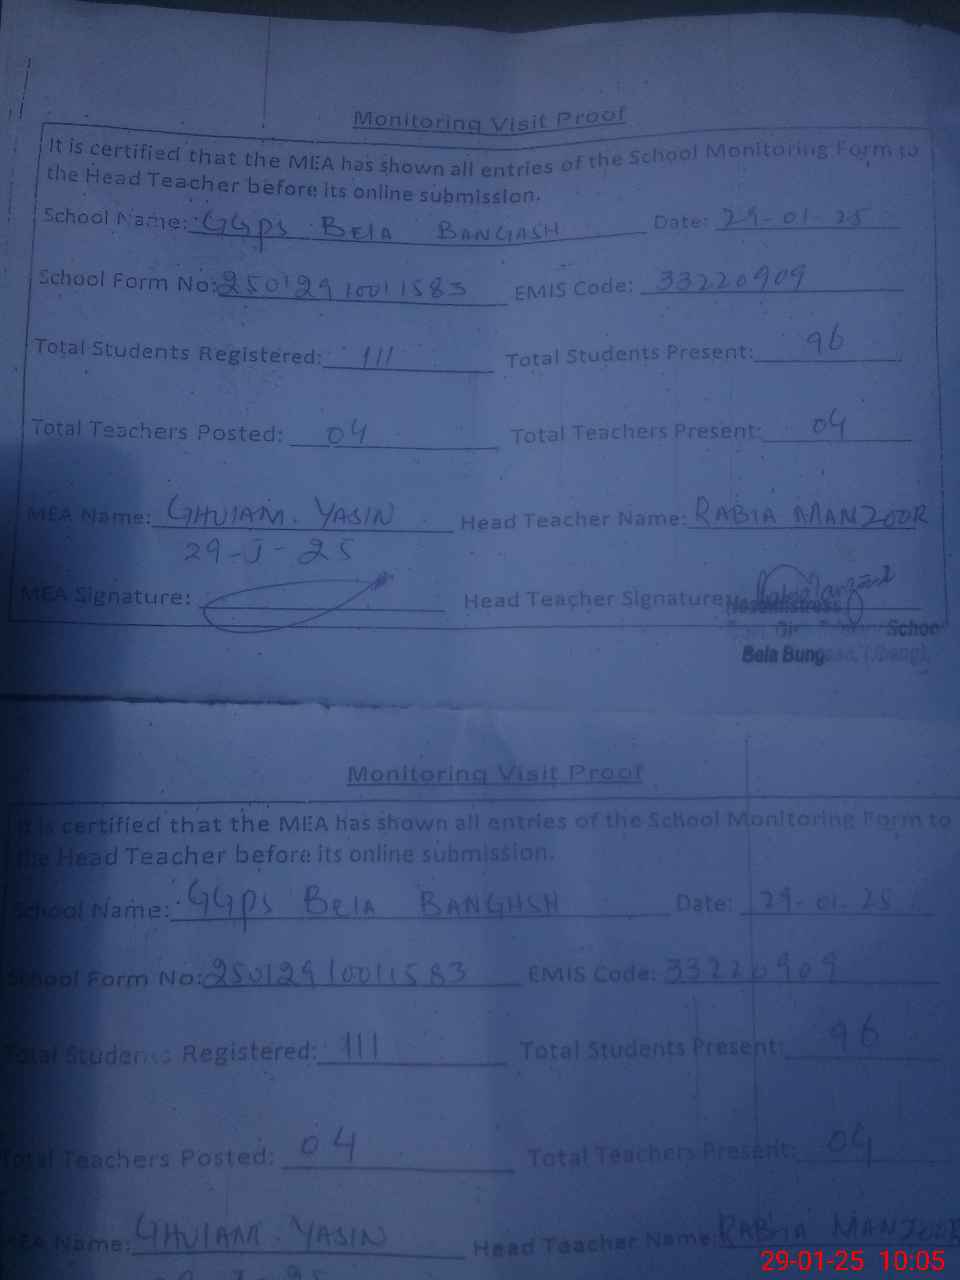 Monitoring Visit Proof
It is certified that the MEA has shown all entries of the School Monitoring Form to
the Head Teacher before its online submission.
School Name: GGPS BELA BANGASH Date: 29-01-25
School Form No: 25012910011583 EMIS Code: 33220909
Total Students Registered: 111 Total Students Present: 96
Total Teachers Posted: 04 Total Teachers Present: 04
MEA Name: GHULAM YASIN Head Teacher Name: RABIA MANZOOR
29-1-25
MEA Signature: Head Teacher Signature:
Headmistress
School
Bela Bung
Monitoring Visit Proof
It is certified that the MEA has shown all entries of the School Monitoring Form to
the Head Teacher before its online submission.
School Name: GGPS BELA BANGHSH Date: 29-01-25
School Form No: 25012910011583 EMIS Code: 33220909
Total Students Registered: 111 Total Students Present: 96
Total Teachers Posted: 04 Total Teachers Present: 04
MEA Name: GHULAM YASIN Head Teacher Name: RABIA MANZOOR
29-01-25 10:05